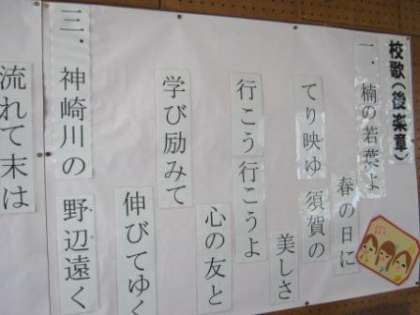 校歌(後楽章)
一．楠の若葉よ
春の日に
てり映ゆ 須賀の
美しさ
行こう 行こうよ
心の友と
学び励みて
伸びてゆく
三．神崎川の 野辺遠く
流れて末は